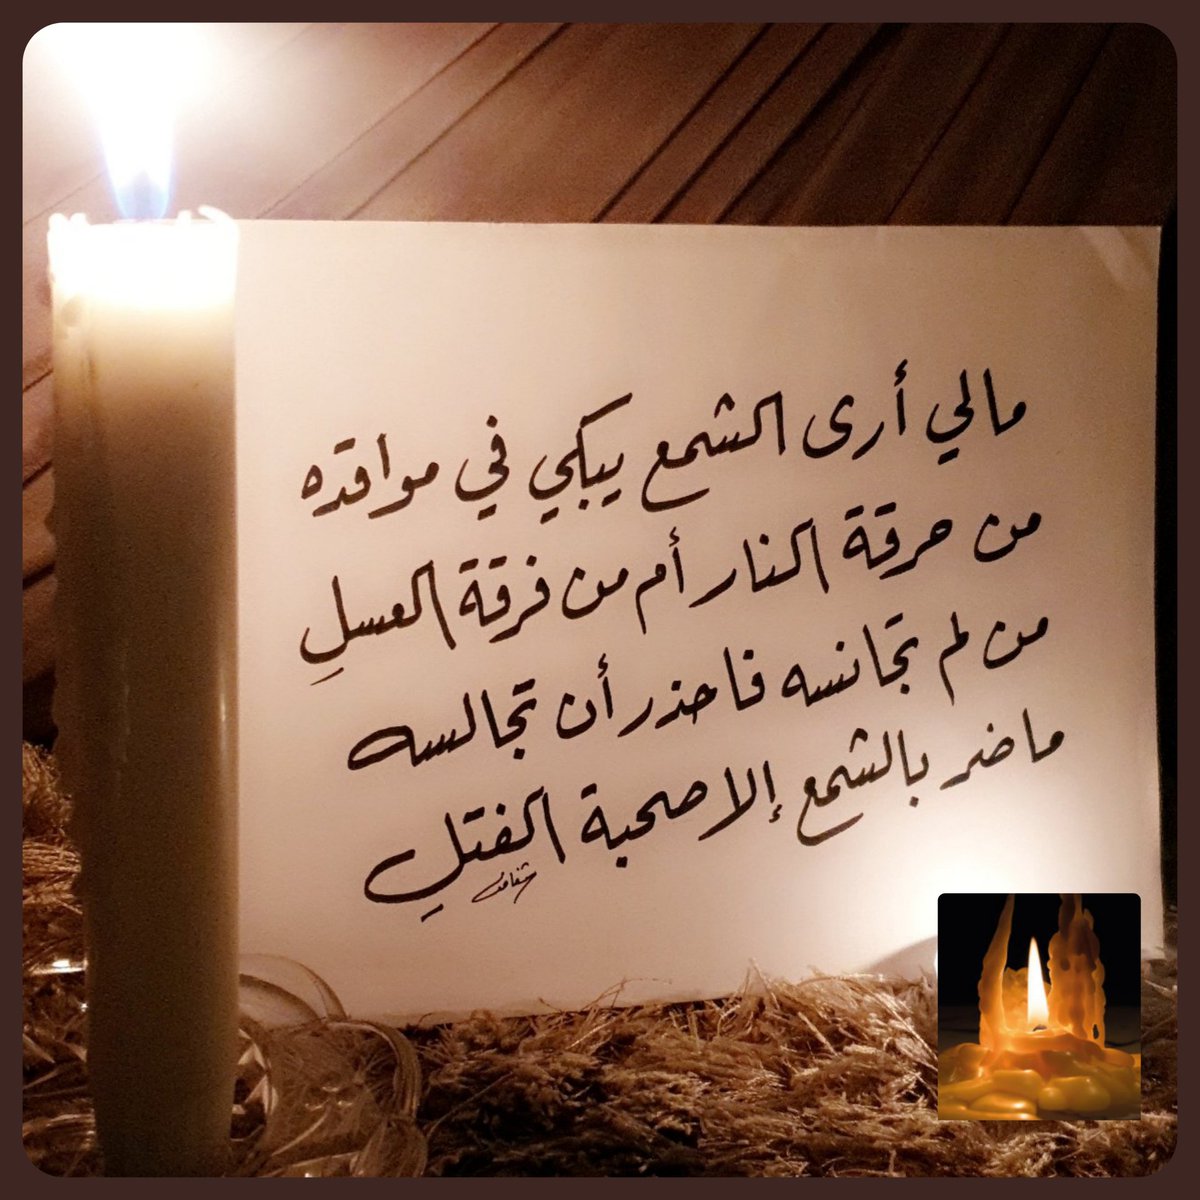 مالي أرى الشمع يبكي في مواقده
من حرقة النار أم من فرقة العسلِ
من لم تجانسه فاحذر أن تجالسه
ما ضر بالشمع إلا صحبة الفتلِ